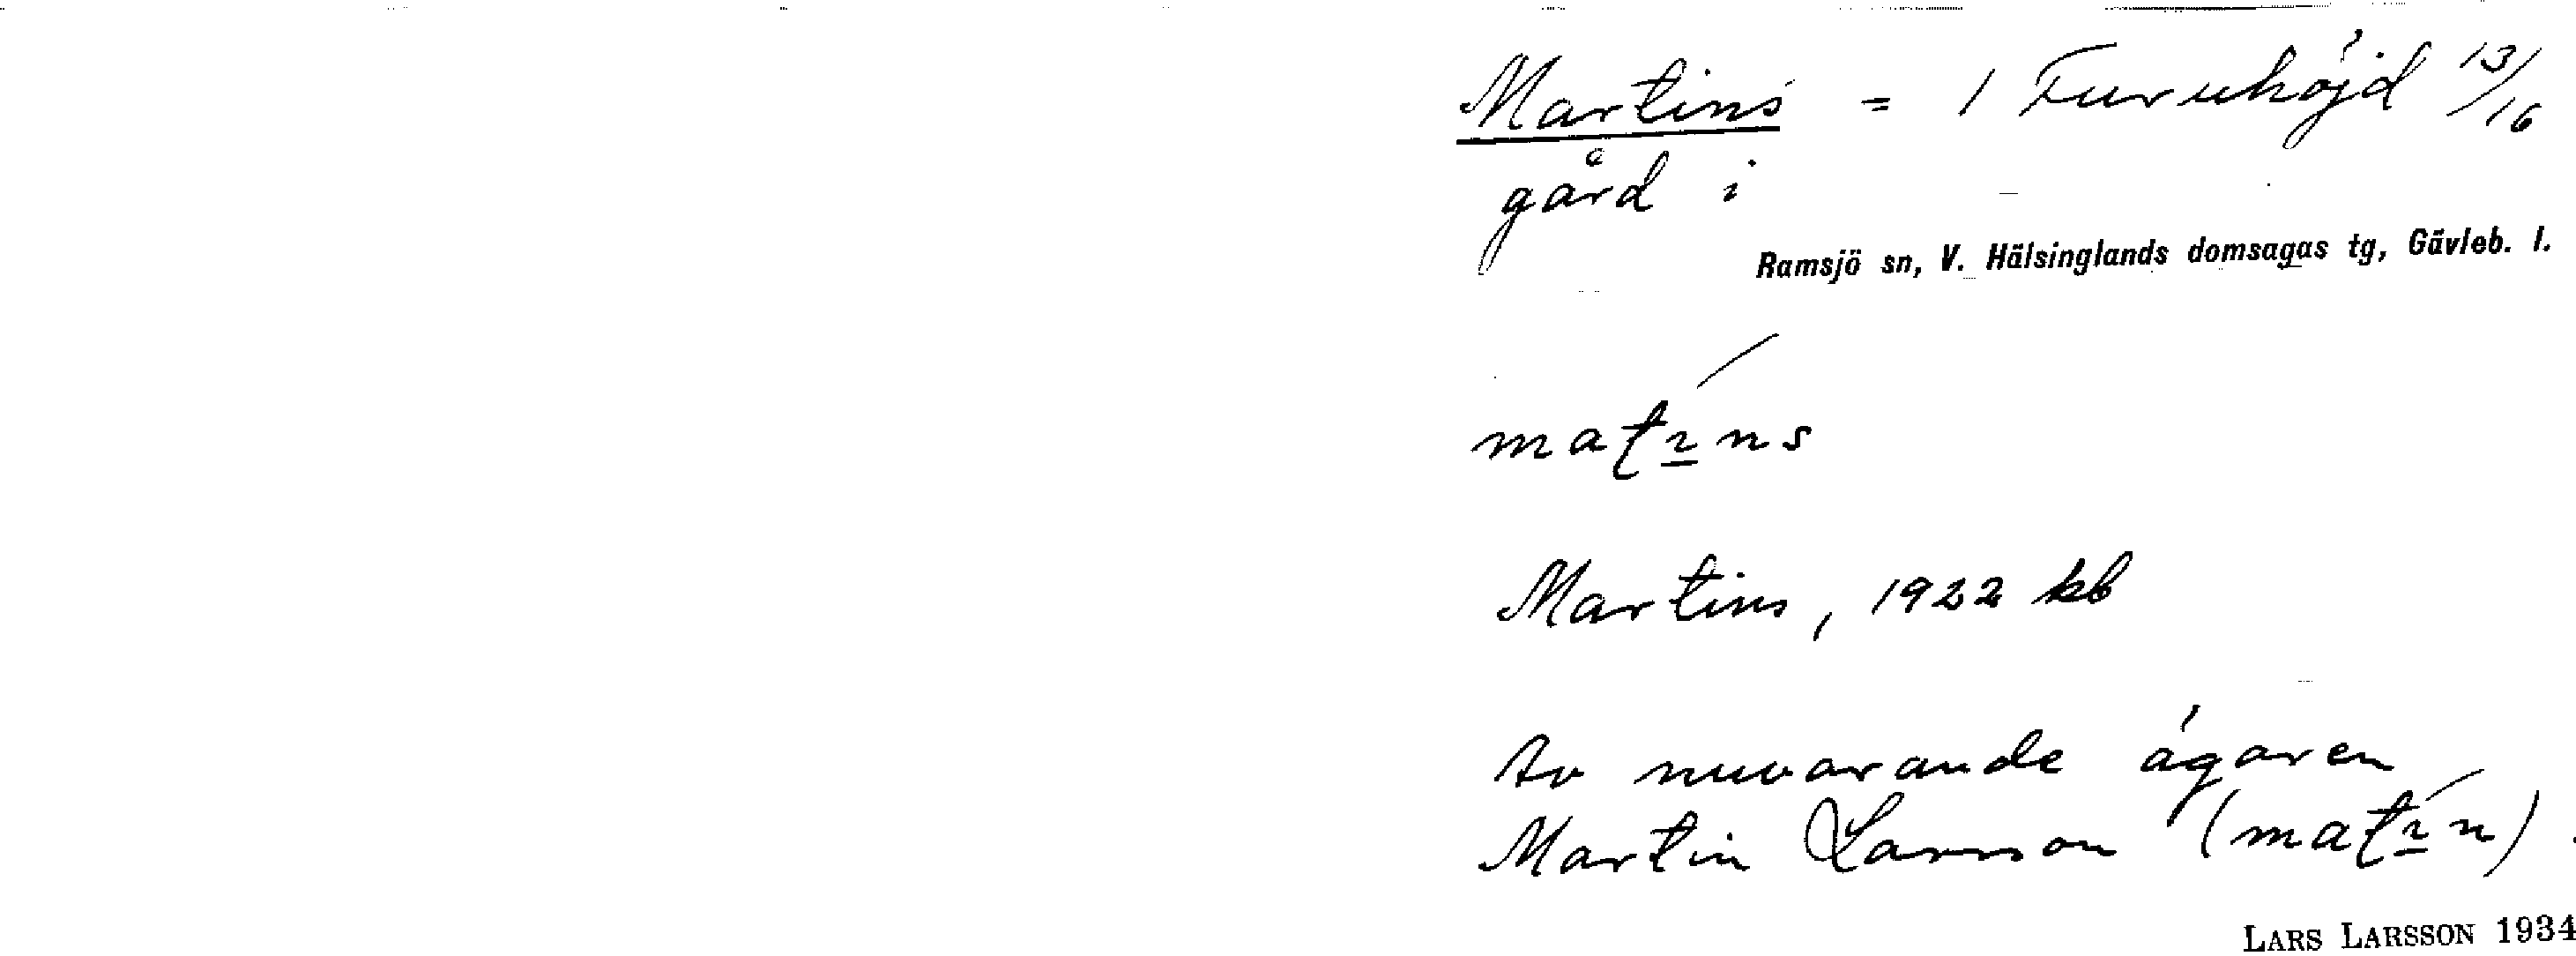 Martins = 1 Furuhöjd 13/16
gård i
Ramsjö sn, V. Hälsinglands domsagas tg, Gävleb. l.
maṭɩ̱́ns
Martins, 1922 kb
Av nuvarande ägaren
Martin Larsson (maṭɩ̱́n).
LARS LARSSON 1934